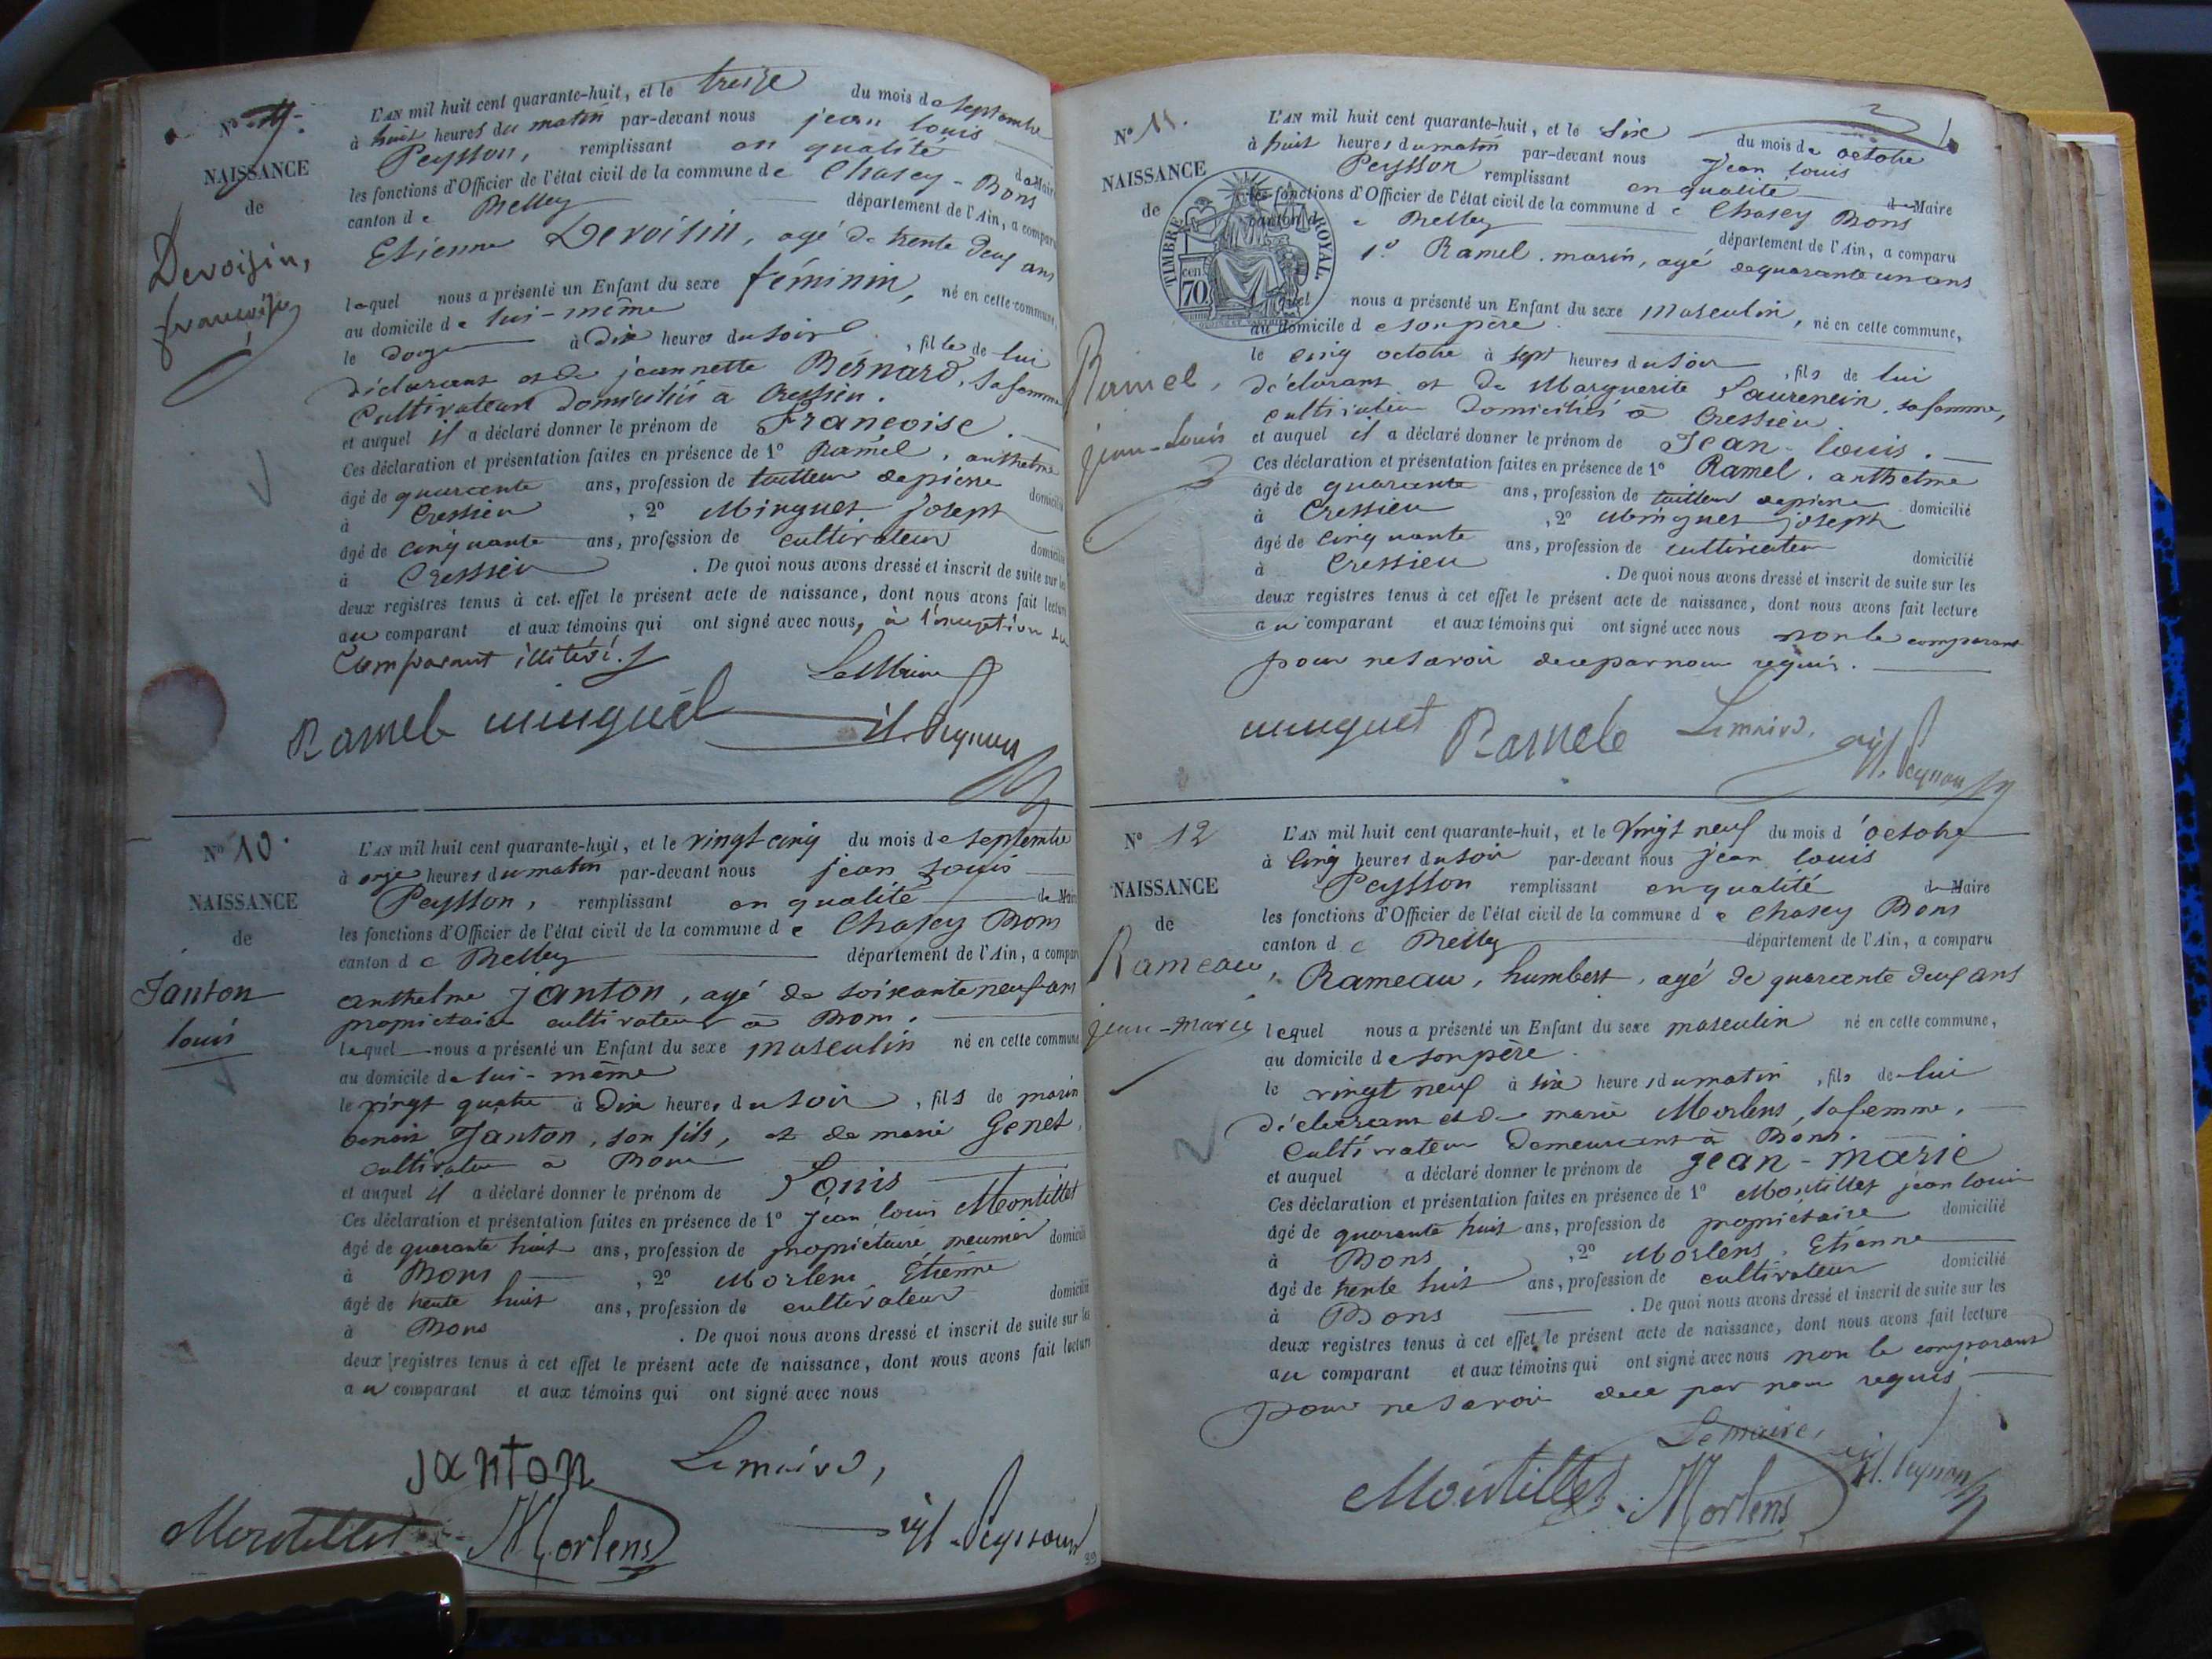 N° 9.
NAISSANCE
de
Devoisin,
françoise
L'AN mil huit cent quarante-huit, et le treize du mois de septembre
à huit heures du matin par-devant nous jean louis
Peysson, remplissant en qualité de Maire
les fonctions d'Officier de l'état civil de la commune de Chasey-Bons
canton de Belley département de l'Ain, a comparu
Etienne Devoisin, agé de trente deux ans
lequel nous a présenté un Enfant du sexe féminin, né en cette commune,
au domicile de lui-même
le douze à Dix heures du soir, fille de lui
déclarant et de jeannette Bernard, sa femme
Cultivateurs domiciliés à Cressieu.
et auquel il a déclaré donner le prénom de Françoise.
Ces déclaration et présentation faites en présence de 1° Ramel, anthelme
âgé de quarante ans, profession de tailleur de pierre domicilié
à Cressieu, 2° Minguet joseph
âgé de cinquante ans, profession de cultivateur domicilié
à Cressieu. De quoi nous avons dressé et inscrit de suite sur les
deux registres tenus à cet effet le présent acte de naissance, dont nous avons fait lecture
au comparant et aux témoins qui ont signé avec nous, à l'exception du
Comparant illiteré.
Le Maire
Ramel minguet jl. Peysson
N° 10.
NAISSANCE
de
Janton
louis
L'AN mil huit cent quarante-huit, et le vingt cinq du mois de septembre
à onze heures du matin par-devant nous jean Louis
Peysson, remplissant en qualité de Maire
les fonctions d'Officier de l'état civil de la commune de Chasey Bons
canton de Belley département de l'Ain, a comparu
anthelme janton, agé de soixante neuf ans
propriétaire cultivateur à Bons.
lequel nous a présenté un Enfant du sexe masculin né en cette commune
au domicile de lui-même
le vingt quatre à Dix heures du soir, fils de marin
benoit Janton, son fils, et de marie Genet,
cultivateur à Bons
et auquel il a déclaré donner le prénom de Louis
Ces déclaration et présentation faites en présence de 1° Jean louis Montillet
âgé de quarante huit ans, profession de propriétaire meunier domicilié
à Bons, 2° Morlens Etienne
âgé de trente huit ans, profession de cultivateur domicilié
à Bons. De quoi nous avons dressé et inscrit de suite sur les
deux registres tenus à cet effet le présent acte de naissance, dont nous avons fait lecture
au comparant et aux témoins qui ont signé avec nous
janton Le maire,
Montillet Morlens jl. Peysson
39
N° 11.
NAISSANCE
de
TIMBRE ROYAL
cen
70
Ramel,
jean-Louis
L'AN mil huit cent quarante-huit, et le six du mois de octobre
à huit heures du matin par-devant nous Jean louis
Peysson remplissant en qualité de Maire
les fonctions d'Officier de l'état civil de la commune de Chasey Bons
canton de Belley département de l'Ain, a comparu
1° Ramel. marin, agé de quarante un ans
lequel nous a présenté un Enfant du sexe masculin, né en cette commune,
au domicile de son père.
le cinq octobre à sept heures du soir, fils de lui
déclarant et de Marguerite Laurencin, sa femme,
cultivateurs domiciliés à Cressieu
et auquel il a déclaré donner le prénom de Jean-louis.
Ces déclaration et présentation faites en présence de 1° Ramel. anthelme
âgé de quarante ans, profession de tailleur de pierre domicilié
à Cressieu, 2° Minguet joseph
âgé de cinquante ans, profession de cultivateur domicilié
à Cressieu. De quoi nous avons dressé et inscrit de suite sur les
deux registres tenus à cet effet le présent acte de naissance, dont nous avons fait lecture
au comparant et aux témoins qui ont signé avec nous non le comparant
pour ne savoir de ce par nous requis.
minguet Ramel Le maire, jl. Peysson
N° 12
NAISSANCE
de
Rameau,
jean-marie
L'AN mil huit cent quarante-huit, et le Vingt neuf du mois d'octobre
à Cinq heures du soir par-devant nous jean louis
Peysson remplissant en qualité de Maire
les fonctions d'Officier de l'état civil de la commune de Chasey Bons
canton de Belley département de l'Ain, a comparu
Rameau, humbert, agé de quarante deux ans
lequel nous a présenté un Enfant du sexe masculin né en cette commune,
au domicile de son père.
le vingt neuf à six heures du matin, fils de lui
déclarant et de marie Morlens, sa femme,
Cultivateurs demeurant à Bons.
et auquel a déclaré donner le prénom de Jean-marie
Ces déclaration et présentation faites en présence de 1° Montillet jean louis
âgé de quarante huit ans, profession de propriétaire domicilié
à Bons, 2° Morlens, Etienne
âgé de trente huit ans, profession de cultivateur domicilié
à Bons. De quoi nous avons dressé et inscrit de suite sur les
deux registres tenus à cet effet le présent acte de naissance, dont nous avons fait lecture
au comparant et aux témoins qui ont signé avec nous non le comparant
pour ne savoir de ce par nous requis
Le maire,
Montillet Morlens jl. Peysson